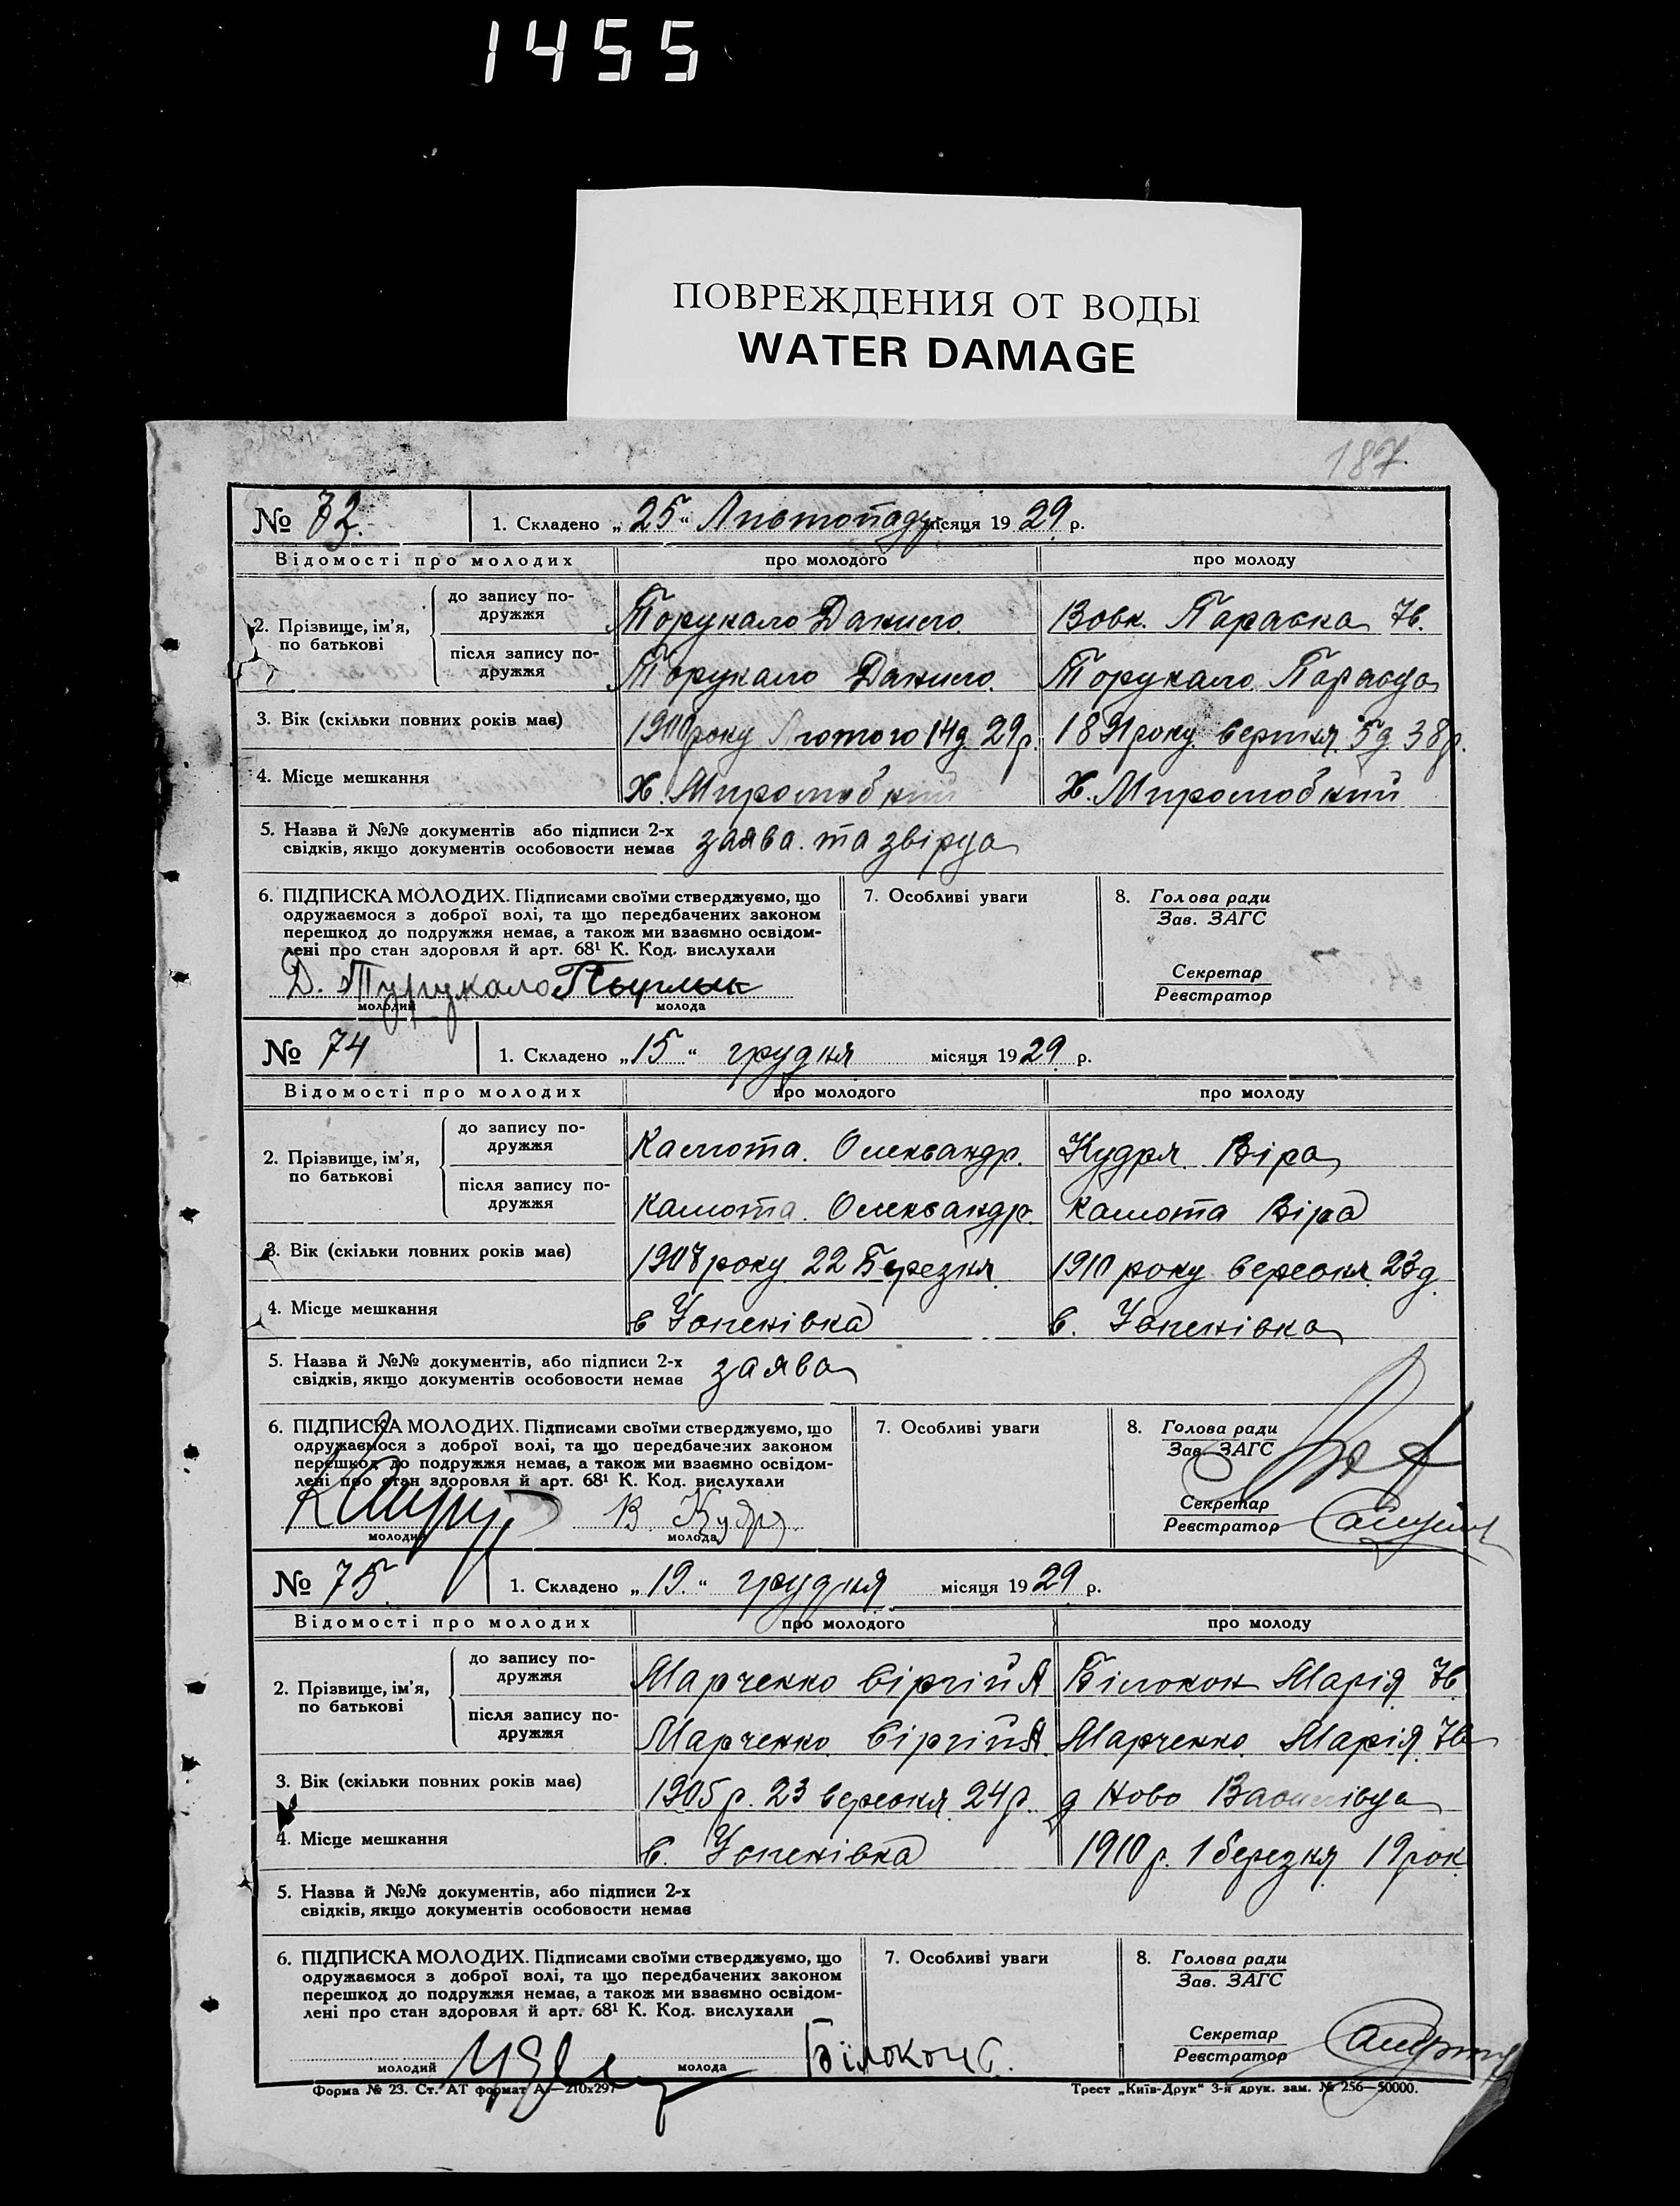 1455
ПОВРЕЖДЕНИЯ ОТ ВОДЫ
WATER DAMAGE
187
№ 72. 1. Складено „25“ Листопаду місяця 1929 р.
Відомості про молодих про молодого про молоду
2. Прізвище, ім'я, по батькові
до запису подружжя Торукало Данило. Вовк. Параска Ів.
після запису подружжя Торукало Данило. Торукало Параска
3. Вік (скільки повних років має) 1900 року Лютого 14д 29р. 1891 року серпня 5д 38р.
4. Місце мешкання Х. Миролюбкий Х. Миролюбкий
5. Назва й №№ документів або підписи 2-х
свідків, якщо документів особовости немає заява. та звірца
6. ПІДПИСКА МОЛОДИХ. Підписами своїми стверджуємо, що 7. Особливі уваги 8. Голова ради
одружаємося з доброї волі, та що передбачених законом Зав. ЗАГС
перешкод до подружжя немає, а також ми взаємно освідом-
лені про стан здоровля й арт. 68¹ К. Код. вислухали
Секретар
Реєстратор
Д. Турукало
молодий молода
№ 74 1. Складено „15“ грудня місяця 1929 р.
Відомості про молодих про молодого про молоду
2. Прізвище, ім'я, по батькові
до запису подружжя Камота. Олександр. Кудря Віра
після запису подружжя Камота. Олександр. Камота Віра
3. Вік (скільки повних років має) 1907 року 22 Березня 1910 року вересня 23д.
4. Місце мешкання с Успенівка с. Успенівка
5. Назва й №№ документів, або підписи 2-х
свідків, якщо документів особовости немає заява
6. ПІДПИСКА МОЛОДИХ. Підписами своїми стверджуємо, що 7. Особливі уваги 8. Голова ради
одружаємося з доброї волі, та що передбачених законом Зав. ЗАГС
перешкод до подружжя немає, а також ми взаємно освідом-
лені про стан здоровля й арт. 68¹ К. Код. вислухали
Секретар
Реєстратор
В. Кудря
молодий молода
№ 75. 1. Складено „19.“ грудня місяця 1929 р.
Відомості про молодих про молодого про молоду
2. Прізвище, ім'я, по батькові
до запису подружжя Марченко Сіргій А Білокон Марія Ів
після запису подружжя Марченко Сіргій А. Марченко Марія Ів
3. Вік (скільки повних років має) 1905 р. 23 вересня 24 р. д Ново Василівца
4. Місце мешкання с. Успенівка 1910 р. 1 березня 19 рок
5. Назва й №№ документів, або підписи 2-х
свідків, якщо документів особовости немає
6. ПІДПИСКА МОЛОДИХ. Підписами своїми стверджуємо, що 7. Особливі уваги 8. Голова ради
одружаємося з доброї волі, та що передбачених законом Зав. ЗАГС
перешкод до подружжя немає, а також ми взаємно освідом-
лені про стан здоровля й арт. 68¹ К. Код. вислухали
Секретар
Реєстратор
молодий молода Білокон
Форма № 23. Ст. АТ формат А₄—210х297 Трест „Київ-Друк“ 3-я друк. зам. № 256—50000.